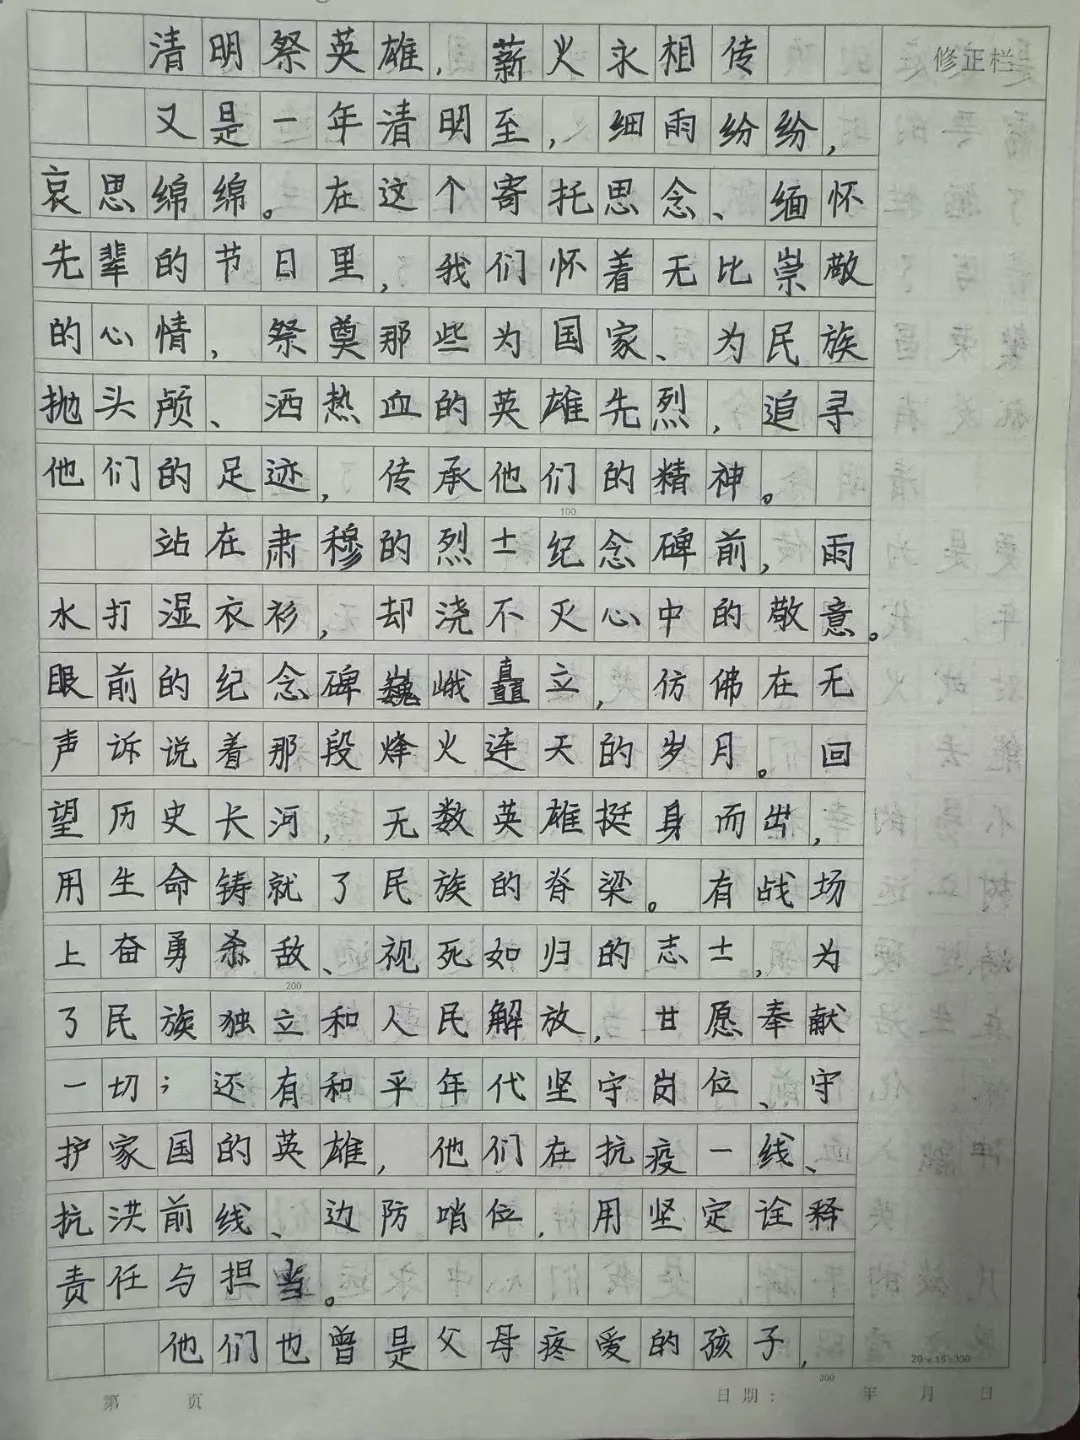 清明祭英雄，薪火永相传
修正栏
又是一年清明至，细雨纷纷，
哀思绵绵。在这个寄托思念、缅怀
先辈的节日里，我们怀着无比崇敬
的心情，祭奠那些为国家、为民族
抛头颅、洒热血的英雄先烈，追寻
他们的足迹，传承他们的精神。
100
站在肃穆的烈士纪念碑前，雨
水打湿衣衫，却浇不灭心中的敬意。
眼前的纪念碑巍峨矗立，仿佛在无
声诉说着那段烽火连天的岁月。回
望历史长河，无数英雄挺身而出，
用生命铸就了民族的脊梁。有战场
上奋勇杀敌、视死如归的志士，为
200
了民族独立和人民解放，甘愿奉献
一切；还有和平年代坚守岗位、守
护家国的英雄，他们在抗疫一线、
抗洪前线、边防哨位，用坚定诠释
责任与担当。
他们也曾是父母疼爱的孩子，
20×15=300
300
第 页 日期： 年 月 日